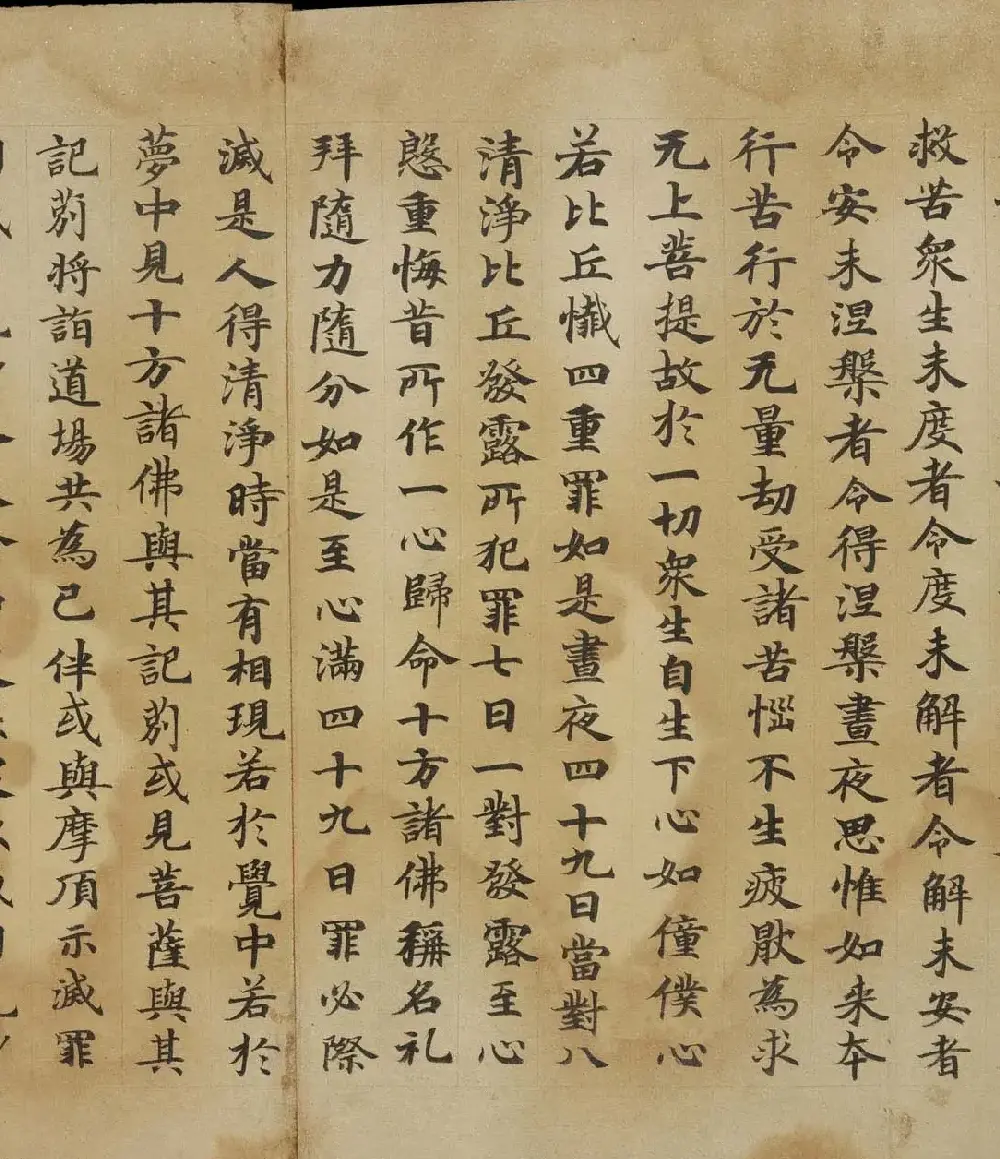 救苦衆生未度者令度未解者令解未安者
令安未涅槃者令得涅槃晝夜思惟如来本
行苦行於无量劫受諸苦惱不生疲猒為求
无上菩提故於一切衆生自生下心如僮僕心
若比丘懴四重罪如是晝夜四十九日當對八
清淨比丘發露所犯罪七日一對發露至心
慇重悔昔所作一心歸命十方諸佛稱名礼
拜隨力隨分如是至心滿四十九日罪必除
滅是人得清淨時當有相現若於覺中若於
夢中見十方諸佛與其記莂或見菩薩與其
記莂将詣道場共為己伴或與摩頂示滅罪